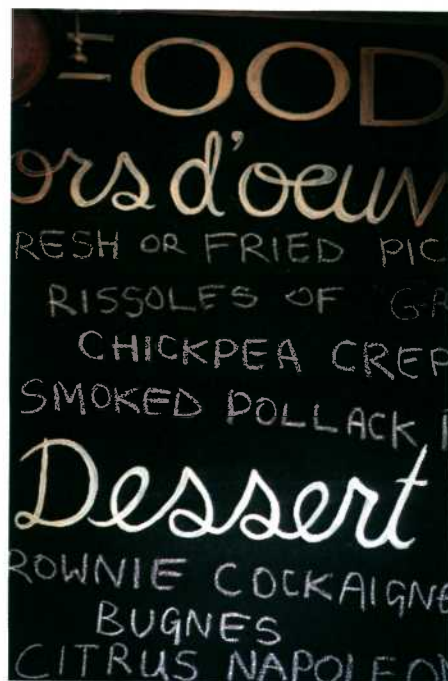 FOOD
ors d'oeuv
RESH OR FRIED PIC
RISSOLES OF GR
CHICKPEA CREP
SMOKED POLLACK
Dessert
ROWNIE COCKAIGNE
BUGNES
CITRUS NAPOLEON